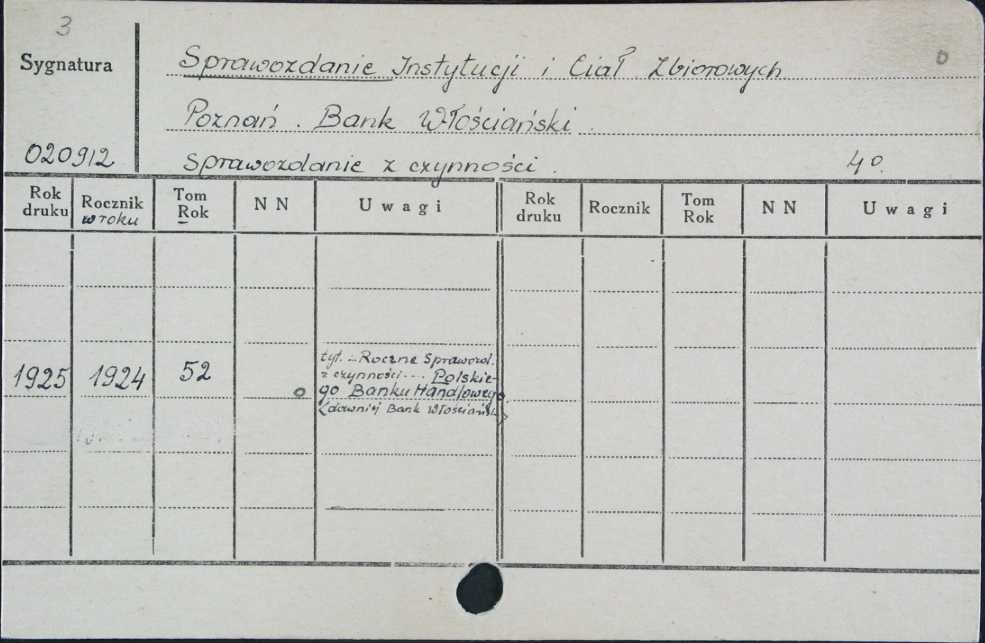 3
Sygnatura
Sprawozdanie Instytucji i Ciał Zbiorowych
0
Poznań. Bank Włościański.
020912
Sprawozdanie z czynności. 40.
Rok druku
Rocznik w roku
Tom Rok
N N
Uwagi
Rok druku
Rocznik
Tom Rok
N N
Uwagi
1925 1924 52 0
tyt. – Roczne Sprawozd.
z czynności... Polskie-
go Banku Handlowego
(dawniej Bank Włościańsk.)